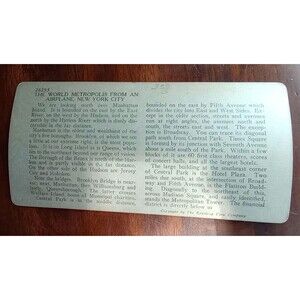 26255
THE WORLD METROPOLIS FROM AN
AIRPLANE, NEW YORK CITY
We are looking north over Manhattan
Island. It is bounded on the east by the East
River, on the west by the Hudson, and on the
north by the Harlem River which is dimly
visible in the far distance.
Manhattan is the oldest and wealthiest of the
city's five boroughs. Brooklyn of which we see
a little at our extreme right, is the most popu-
lous. It is on Long Island as is Queens, which
is out of our range of vision farther to the right.
The Borough of the Bronx is north of the Har-
lem and is partly visible in the far distance.
On the other side of the Hudson are Jersey
City and Hoboken.
Brooklyn Bridge is
near; next, Manhattan; then Williamsburg and
Central Park is in the middle distance,
bounded on the east by Fifth Avenue which
divides the city into East and West Sides. Ex-
cept in the older section, streets and avenues
run at right angles, the avenues north and
south, the streets east and west. The exception
is Broadway. You can trace its diagonal
path south from Central Park. Times Square
is formed by its junction with Seventh Avenue
about a mile south of the Park. Within a few
blocks of it are 60 first class theaters, scores
of concert halls, and all the largest hotels.
The large building at the southeast corner
of Central Park is the Hotel Plaza. Two
miles due south, at the intersection of Broad-
way and Fifth Avenue, is the Flatiron Build-
ing. Diagonally to the northeast of this,
across Madison Square, and easily identified,
stands the Metropolitan Tower. The financial
district is directly below us
Copyright by The Keystone View Company